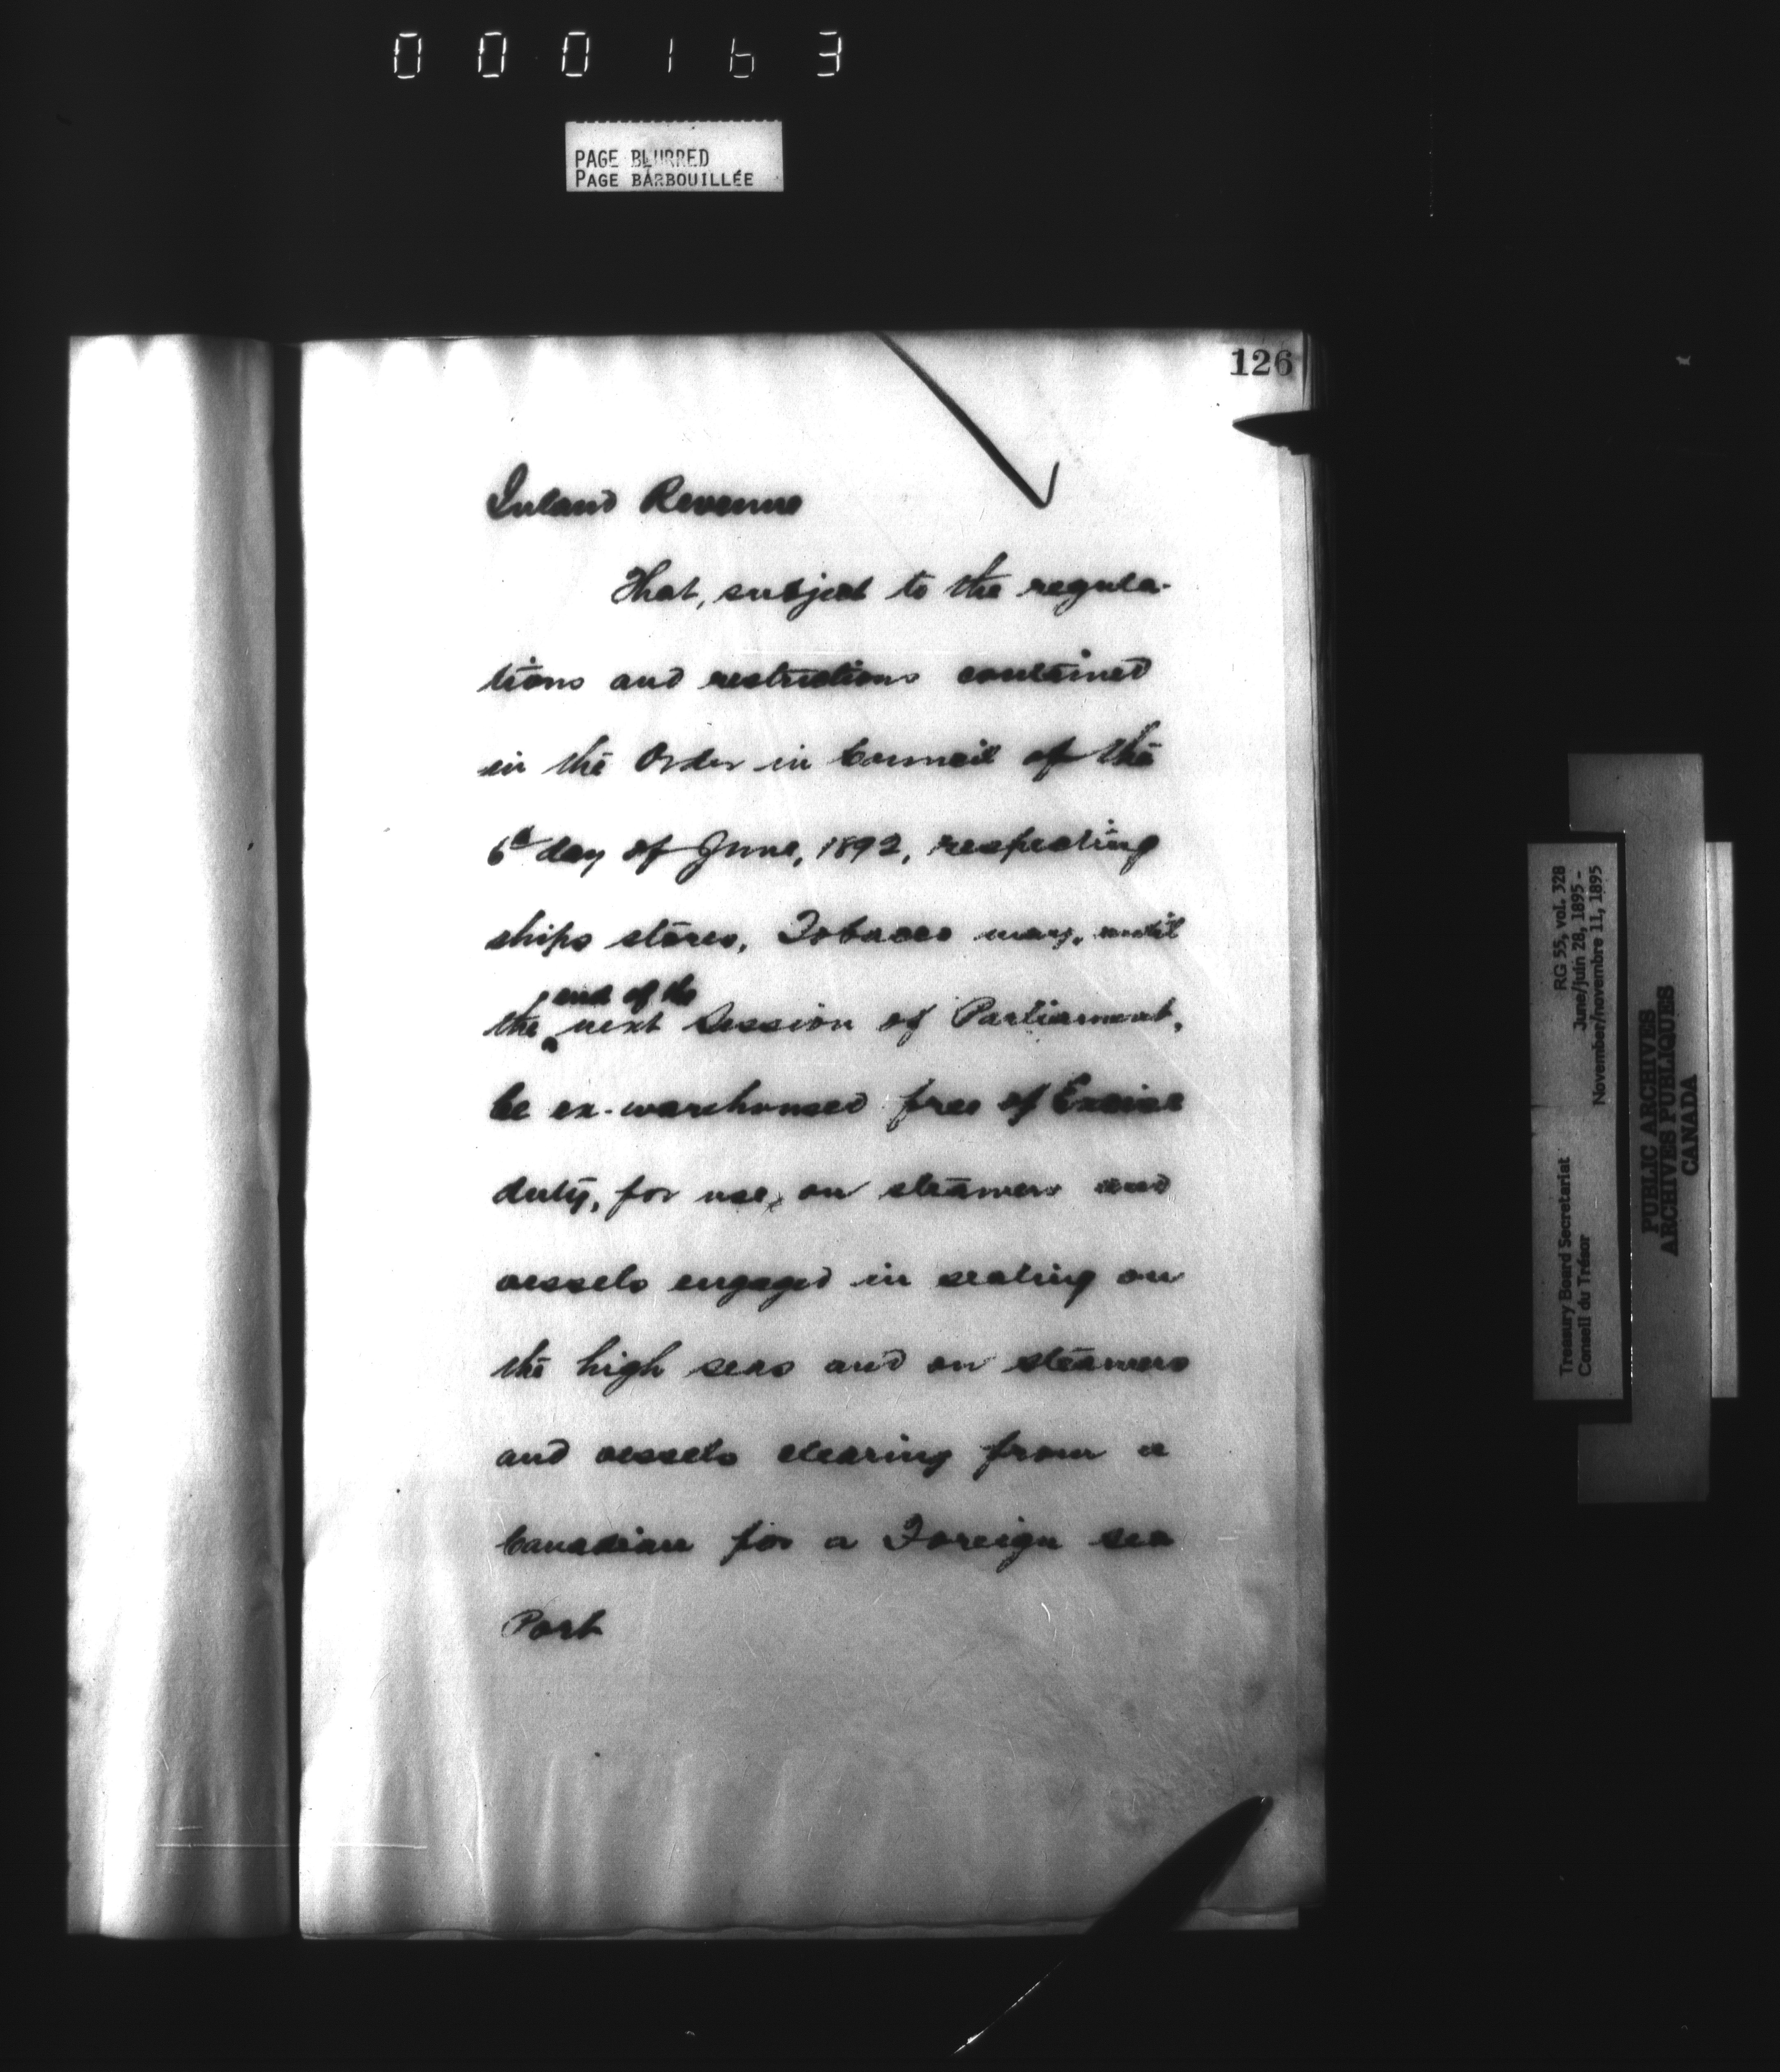 000163
PAGE BLURRED
PAGE BARBOUILLÉE
126
Inland Revenue
That, subject to the regula-
tions and restrictions contained
in the Order in Council of the
6th day of June, 1892, respecting
ships stores, Tobacco may, until
end of the
the next Session of Parliament,
be ex-warehoused free of Excise
duty, for use, on steamers and
vessels engaged in sealing on
the high seas and on steamers
and vessels clearing from a
Canadian for a Foreign sea
Port
Treasury Board Secretariat RG 55, vol. 328
Conseil du Trésor June/juin 28, 1895 -
November/novembre 11, 1895
PUBLIC ARCHIVES
ARCHIVES PUBLIQUES
CANADA